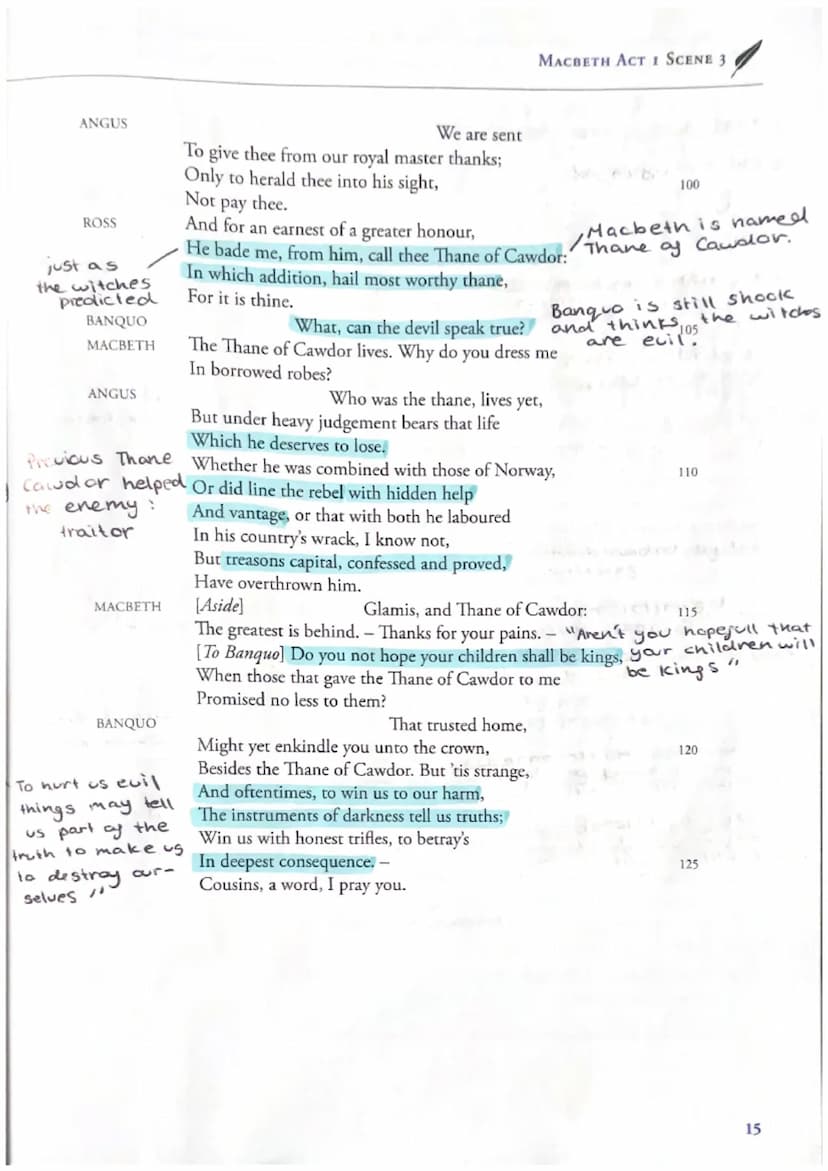 MACBETH ACT 1 SCENE 3
ANGUS We are sent
To give thee from our royal master thanks;
Only to herald thee into his sight, 100
Not pay thee.
ROSS And for an earnest of a greater honour,
He bade me, from him, call thee Thane of Cawdor:
Macbeth is named
Thane of Cawdor.
In which addition, hail most worthy thane,
For it is thine.
just as
the witches
predicted
BANQUO What, can the devil speak true?
Banquo is still shock
and thinks the witches
are evil.
105
MACBETH The Thane of Cawdor lives. Why do you dress me
In borrowed robes?
ANGUS Who was the thane, lives yet,
But under heavy judgement bears that life
Which he deserves to lose.
Whether he was combined with those of Norway, 110
Or did line the rebel with hidden help
And vantage, or that with both he laboured
In his country's wrack, I know not,
But treasons capital, confessed and proved,
Have overthrown him.
Previous Thane
Cawdor helped
the enemy :
traitor
MACBETH [Aside] Glamis, and Thane of Cawdor: 115
The greatest is behind. – Thanks for your pains. –
[To Banquo] Do you not hope your children shall be kings,
When those that gave the Thane of Cawdor to me
Promised no less to them?
"Aren't you hopefull that
your children will
be kings"
BANQUO That trusted home,
Might yet enkindle you unto the crown, 120
Besides the Thane of Cawdor. But 'tis strange,
And oftentimes, to win us to our harm,
The instruments of darkness tell us truths;
Win us with honest trifles, to betray's
In deepest consequence. – 125
Cousins, a word, I pray you.
To hurt us evil
things may tell
us part of the
truth to make us
to destroy our-
selves "
15